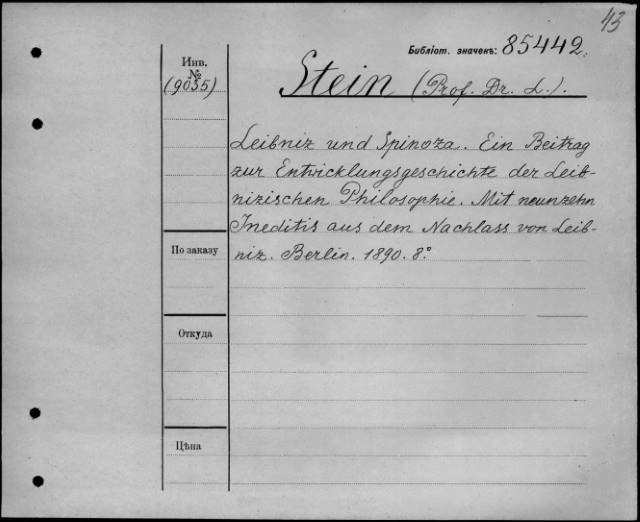 43
Библіот. значекъ: 85442.
Инв.
№
(9035)
Stein (Prof. Dr. L.).
Leibniz und Spinoza. Ein Beitrag
zur Entwicklungsgeschichte der Leib-
nizischen Philosophie. Mit neunzehn
Ineditis aus dem Nachlass von Leib-
niz. Berlin. 1890. 8°.
По заказу
Откуда
Цѣна